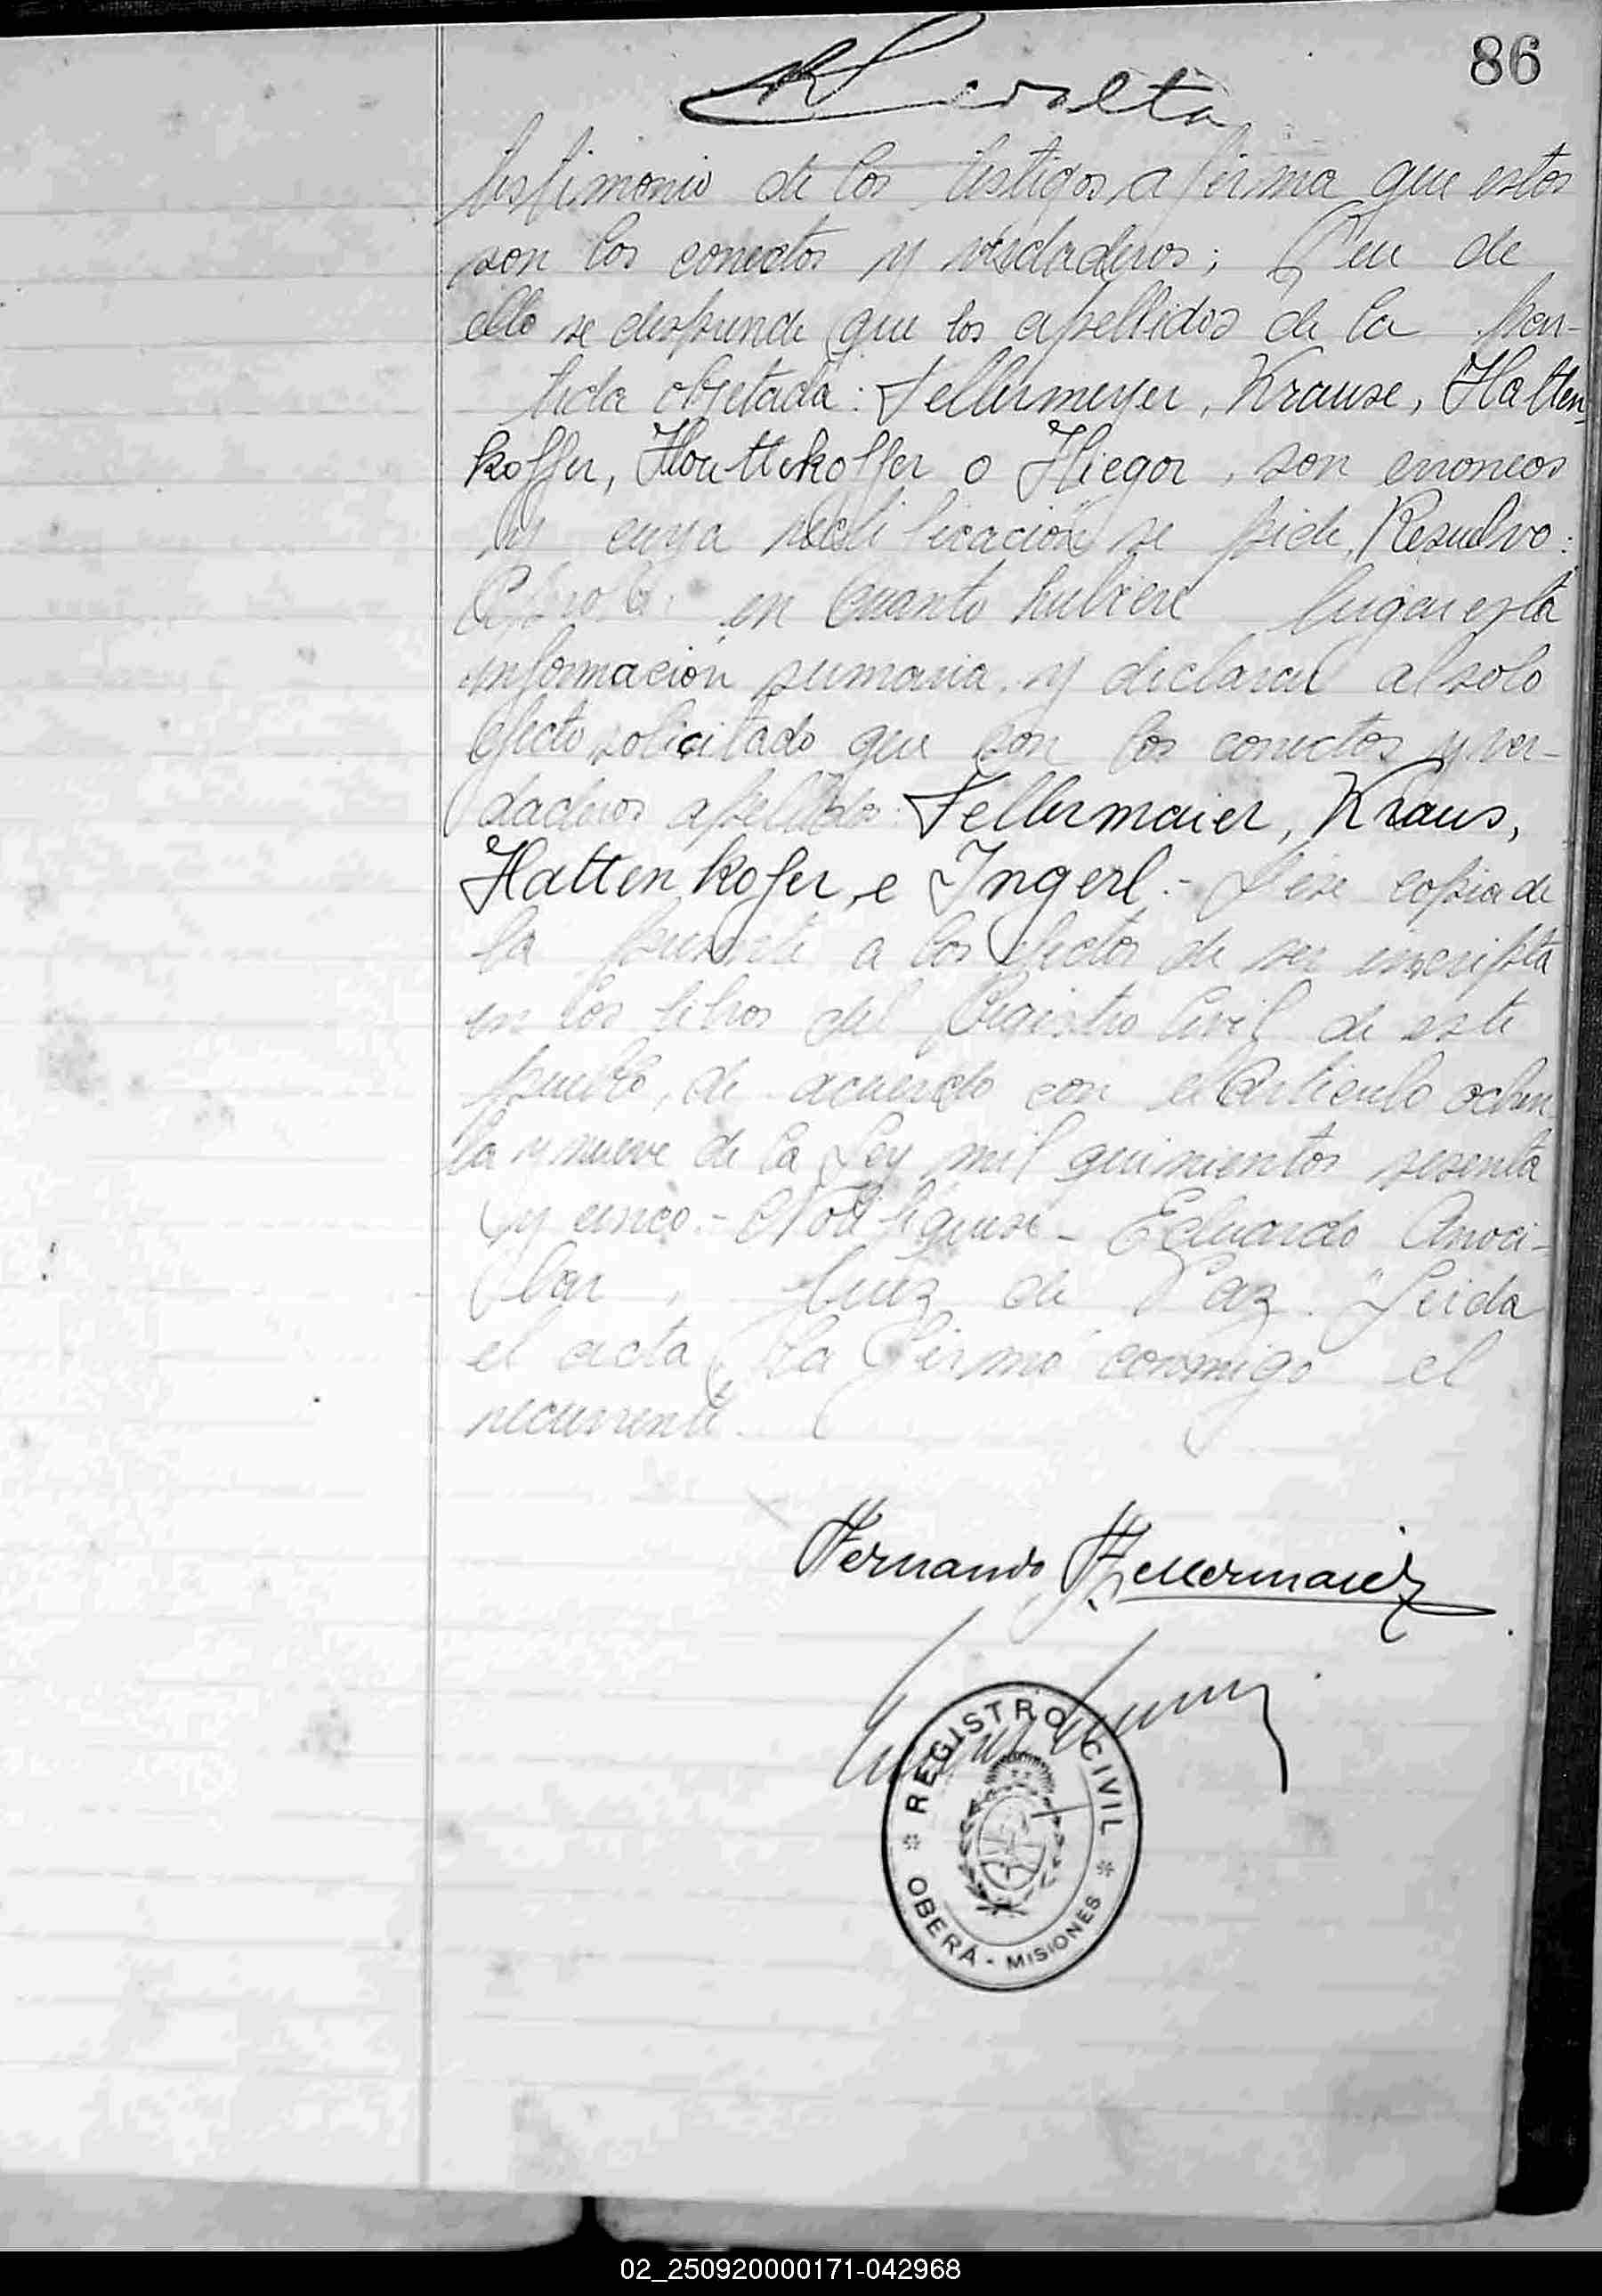 86
testimonio de los testigos, afirma que estos
son los correctos y verdaderos; Que de
ello se desprende que los apellidos de la par-
tida objetada: Fellermeyer, Krause, Hatten-
koffer, Houttekoffer o Hiegor, son erroneos
y cuya rectificación se pide, Resuelvo:
Aprobar en cuanto hubiere lugar esta
información sumaria, y declarar al solo
efecto solicitado que son los correctos y ver-
daderos apellidos: Fellermaier, Kraus,
Hattenkofer, e Ingerl.- Dése copia de
la presente a los efectos de ser inscripta
en los libros del Registro Civil de este
pueblo, de acuerdo con el artículo ochen
ta y nueve de la Ley mil quinientos sesenta
y cinco.- Notifíquese - Eduardo Aroci-
bar, Juez de Paz." Leida
el acta, la firmó conmigo el
recurrente.
Fernando Fellermaier
REGISTRO CIVIL
OBERÁ - MISIONES
02_250920000171-042968